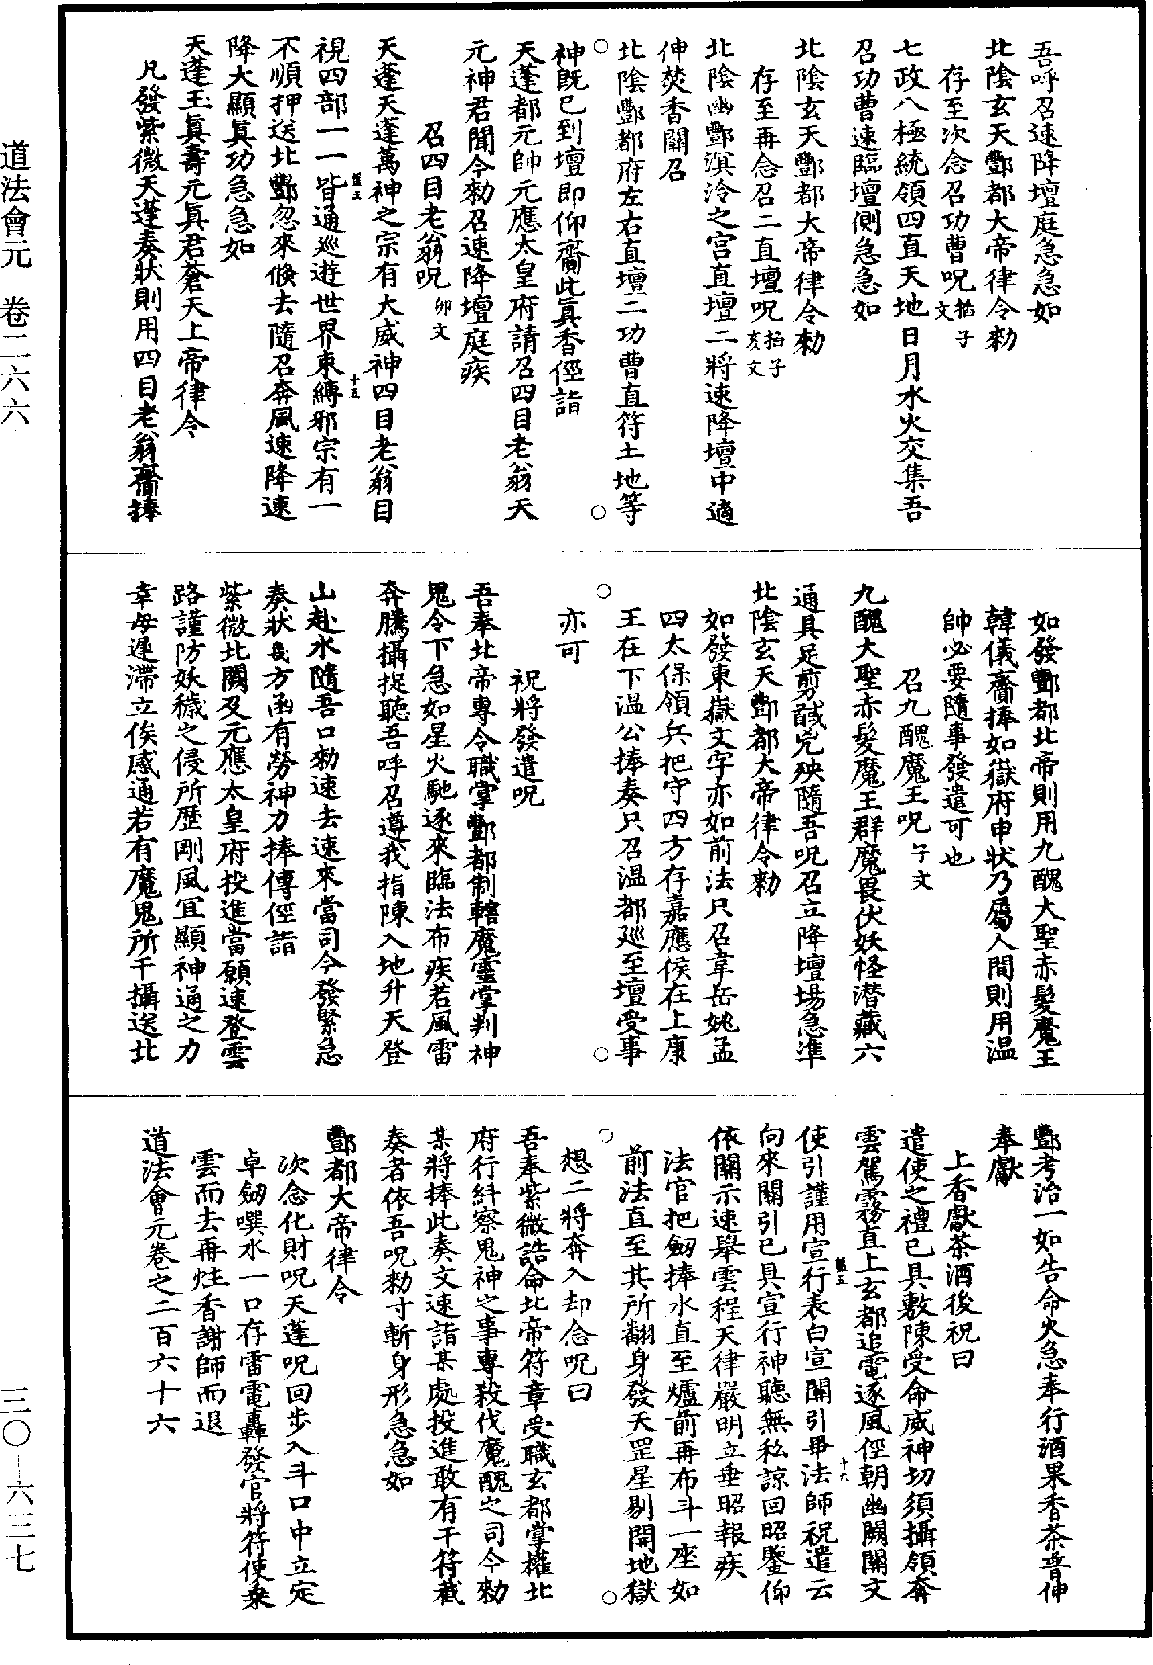 道法會元 卷二六六
三〇—六三七
吾呼召速降壇庭急急如
北陰玄天酆都大帝律令勅
存至次念召功曹呪 掐子文
七政八極統領四直天地日月水火交集吾
召功曹速臨壇側急急如
北陰玄天酆都大帝律令勅
存至再念召二直壇呪 掐子亥文
北陰幽酆溟泠之宫直壇二將速降壇中適
伸焚香關召
北陰酆都府左右直壇二功曹直符土地等
神既已到壇即仰齎此真香徑詣
天蓬都元帥元應太皇府請召四目老翁天
元神君聞令勅召速降壇庭疾
召四目老翁呪 卯文
天蓬天蓬萬神之宗有大威神四目老翁目
視四部一一皆通巡遊世界束縛邪宗有一
不順押送北酆忽來倏去隨召奔風速降速
降大顯真功急急如
天蓬玉真壽元真君蒼天上帝律令
凡發紫微天蓬奏狀則用四目老翁齎捧
如發酆都北帝則用九醜大聖赤髮魔王
韓儀齎捧如嶽府申狀乃屬人間則用温
帥必要隨事發遣可也
召九醜魔王呪 午文
九醜大聖赤髮魔王群魔畏伏妖怪潜藏六
通具足剪馘兇殃隨吾呪召立降壇場急準
北陰玄天酆都大帝律令勅
如發東嶽文字亦如前法只召韋岳姚孟
四太保領兵把守四方存嘉應侯在上康
王在下温公捧奏只召温都廵至壇受事
亦可
祝將發遣呪
吾奉北帝專令職掌酆都制轄魔靈掌判神
鬼令下急如星火馳逐來臨法布疾若風雷
奔騰攝捉聽吾呼召遵我指陳入地升天登
山赴水隨吾口勅速去速來當司今發緊急
奏狀幾方函有勞神力捧傳徑詣
紫微北闕及元應太皇府投進當願速登雲
路謹防妖穢之侵所歷剛風冝顯神通之力
幸毋遲滯立俟感通若有魔鬼所干攝送北
酆考治一如告命火急奉行酒果香茶晉伸
奉獻
上香獻茶酒後祝曰
遣使之禮已具敷陳受命威神切須攝領奔
雲駕霧直上玄都追電逐風徑朝幽闕關文
使引謹用宣行表白宣關引畢法師祝遣云
向來關引已具宣行神聽無私諒回昭鑒仰
依關示速舉雲程天律嚴明立垂昭報疾
法官把劒捧水直至爐前再布斗一座如
前法直至其所翻身發天罡星剔開地獄
想二將奔入却念呪曰
吾奉紫微誥命北帝符章受職玄都掌權北
府行糾察鬼神之事專殺伐魔醜之司今勅
某將捧此奏文速詣某處投進敢有干符截
奏者依吾呪勅寸斬身形急急如
酆都大帝律令
次念化財呪天蓬呪回步入斗口中立定
卓劒噀水一口存雷電轟發官將符使乗
雲而去再炷香謝師而退
道法會元卷之二百六十六